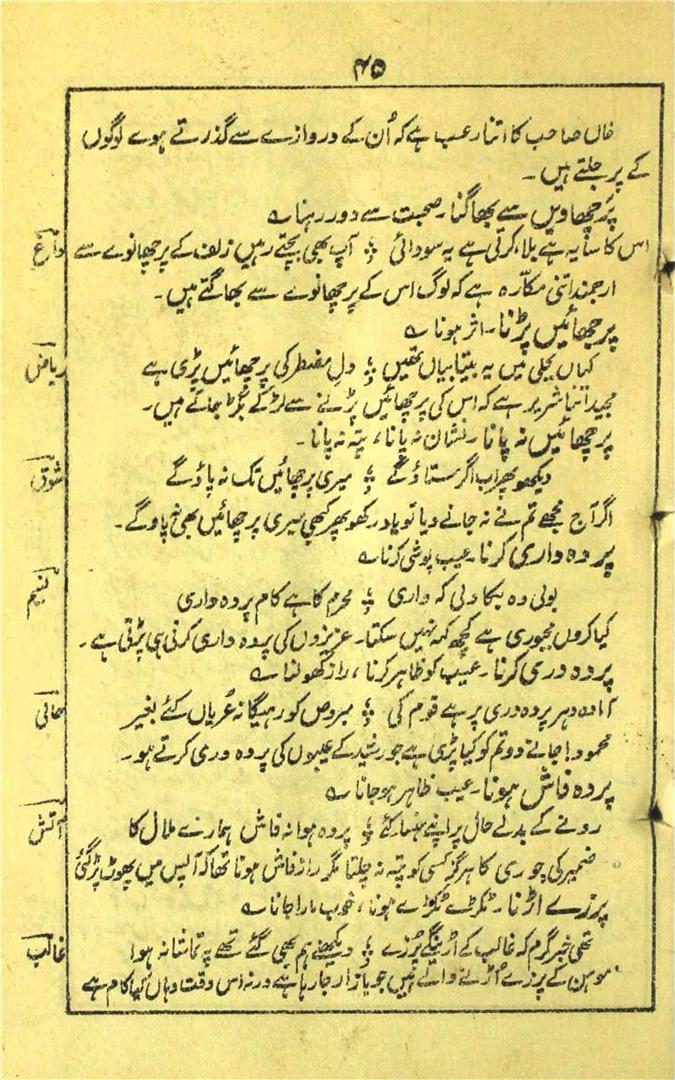 ۴۵
خاں صاحب کا اتنا رعب ہے کہ اُن کے دروازے سے گذرتے ہوے لوگوں
کے پر جلتے ہیں ۔
پرچھاویں سے بھاگنا ۔ صحبت سے دور رہنا ؎
اس کا سایہ ہے بلا، کرتی ہے یہ سودائی ؛ آپ بھی بچتے رہیں زلف کے پرچھانوے سے داغ
ارجمند اتنی مکّارہ ہے کہ لوگ اس کے پرچھانوے سے بھاگتے ہیں ۔
پرچھائیں پڑنا ۔ اثر ہونا ؎
کہاں بجلی میں یہ بیتابیاں تھیں ؛ دلِ مضطر کی پرچھائیں پڑی ہے ریاض
مجید اتنا شریر ہے کہ اس کی پرچھائیں پڑنے سے لڑکے بگڑ جاتے ہیں ۔
پرچھائیں نہ پانا ۔ نشان نہ پانا، پتہ نہ پانا ۔
دیکھو پھر اب اگر ستاؤ گے ؛ میری پرچھائیں تک نہ پاؤ گے شوق
اگر آج مجھے تم نے نہ جانے دیا تو یاد رکھو پھر کبھی میری پرچھائیں بھی نہ پاوگے ۔
پردہ داری کرنا ۔ عیب پوشی کرنا ؎
بولی وہ بکاولی کہ واری ؛ محرم کا ہے کام پردہ داری نسیم
کیا کروں مجبوری ہے کچھ کہہ نہیں سکتا ۔ عزیزوں کی پردہ داری کرنی ہی پڑتی ہے ۔
پردہ دری کرنا ۔ عیب کو ظاہر کرنا ، راز کھولنا ؎
آمادہ دہر پردہ دری پر ہے قوم کی ؛ مبروص کو رہیگا نہ عُریاں کئے بغیر حالی
محمود! جانے دو تم کو کیا پڑی ہے جو رشید کے عیبوں کی پردہ دری کرتے ہو ۔
پردہ فاش ہونا ۔ عیب ظاہر ہوجانا ؎
رونے کے بدلے حال پر اپنے ہنسا کئے ؛ پردہ ہوا نہ فاش ہمارے ملال کا آتش
ضمیر کی چوری کا ہرگز کسی کو پتہ نہ چلتا مگر راز فاش ہونا تھا کہ آپس میں پھوٹ پڑگئی
پرزے اڑنا ۔ ٹکڑے ٹکڑے ہونا ، خوب مارا جانا ؎
تھی خبر گرم کہ غالب کے اڑینگے پُرزے ؛ دیکھنے ہم بھی گئے تھے پہ تماشا نہ ہوا غالب
موہن کے پرزے اُڑنے والے ہیں جو بازار جارہا ہے ورنہ اس وقت وہاں کیا کام ہے